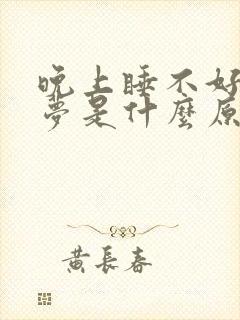 晚上睡不好
夢是什麼原
黃長春